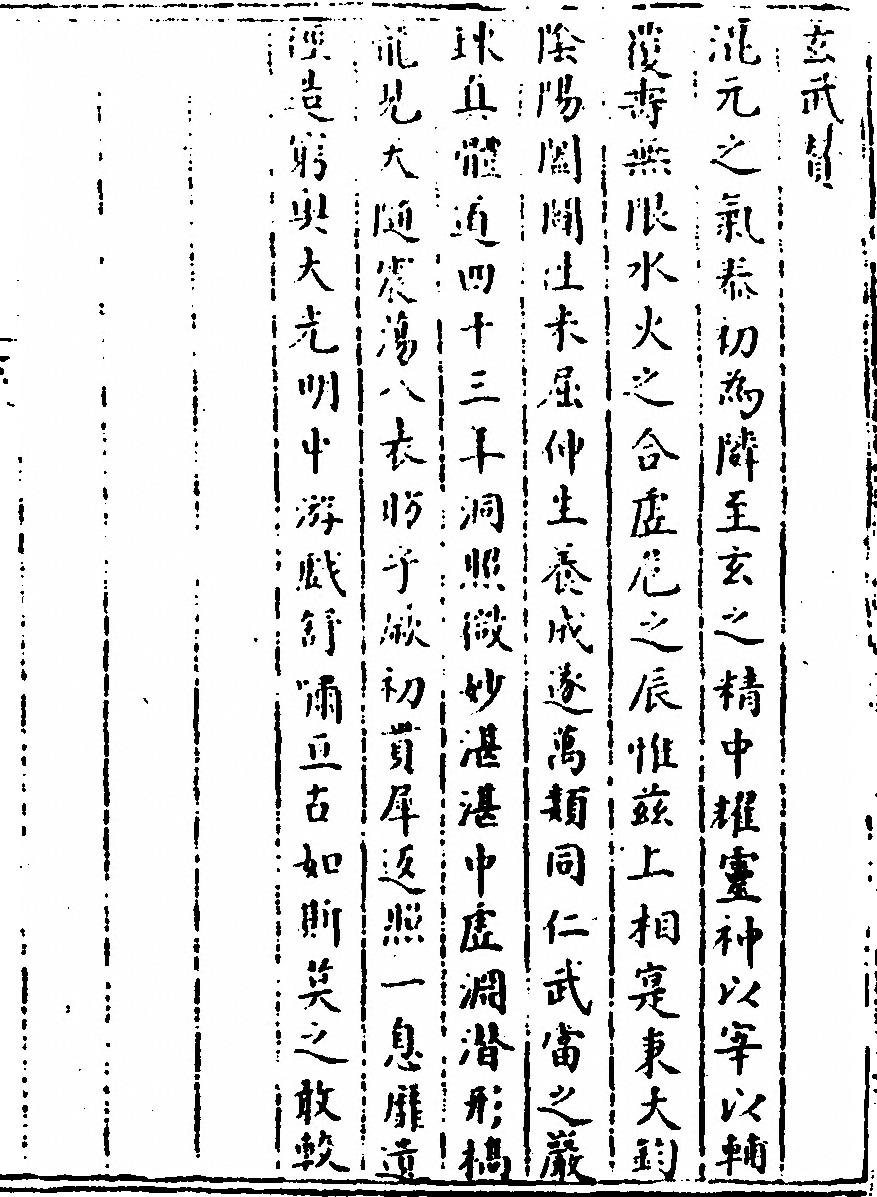 玄武贊
混元之氣泰初為隣至玄之精中耀靈神以宰以輔
覆壽無限水火之合虛危之辰惟茲上相寔秉大鈞
陰陽闔闢往来屈伸生養成遂萬類同仁武當之巖
真體道四十三年洞照微妙湛湛中虛淵潜形槁
龍見天隨震蕩八表昉乎厥初貫犀返照一息靡遺
造窮奥大光明中游戲舒嘯亘古如斯莫之敢較